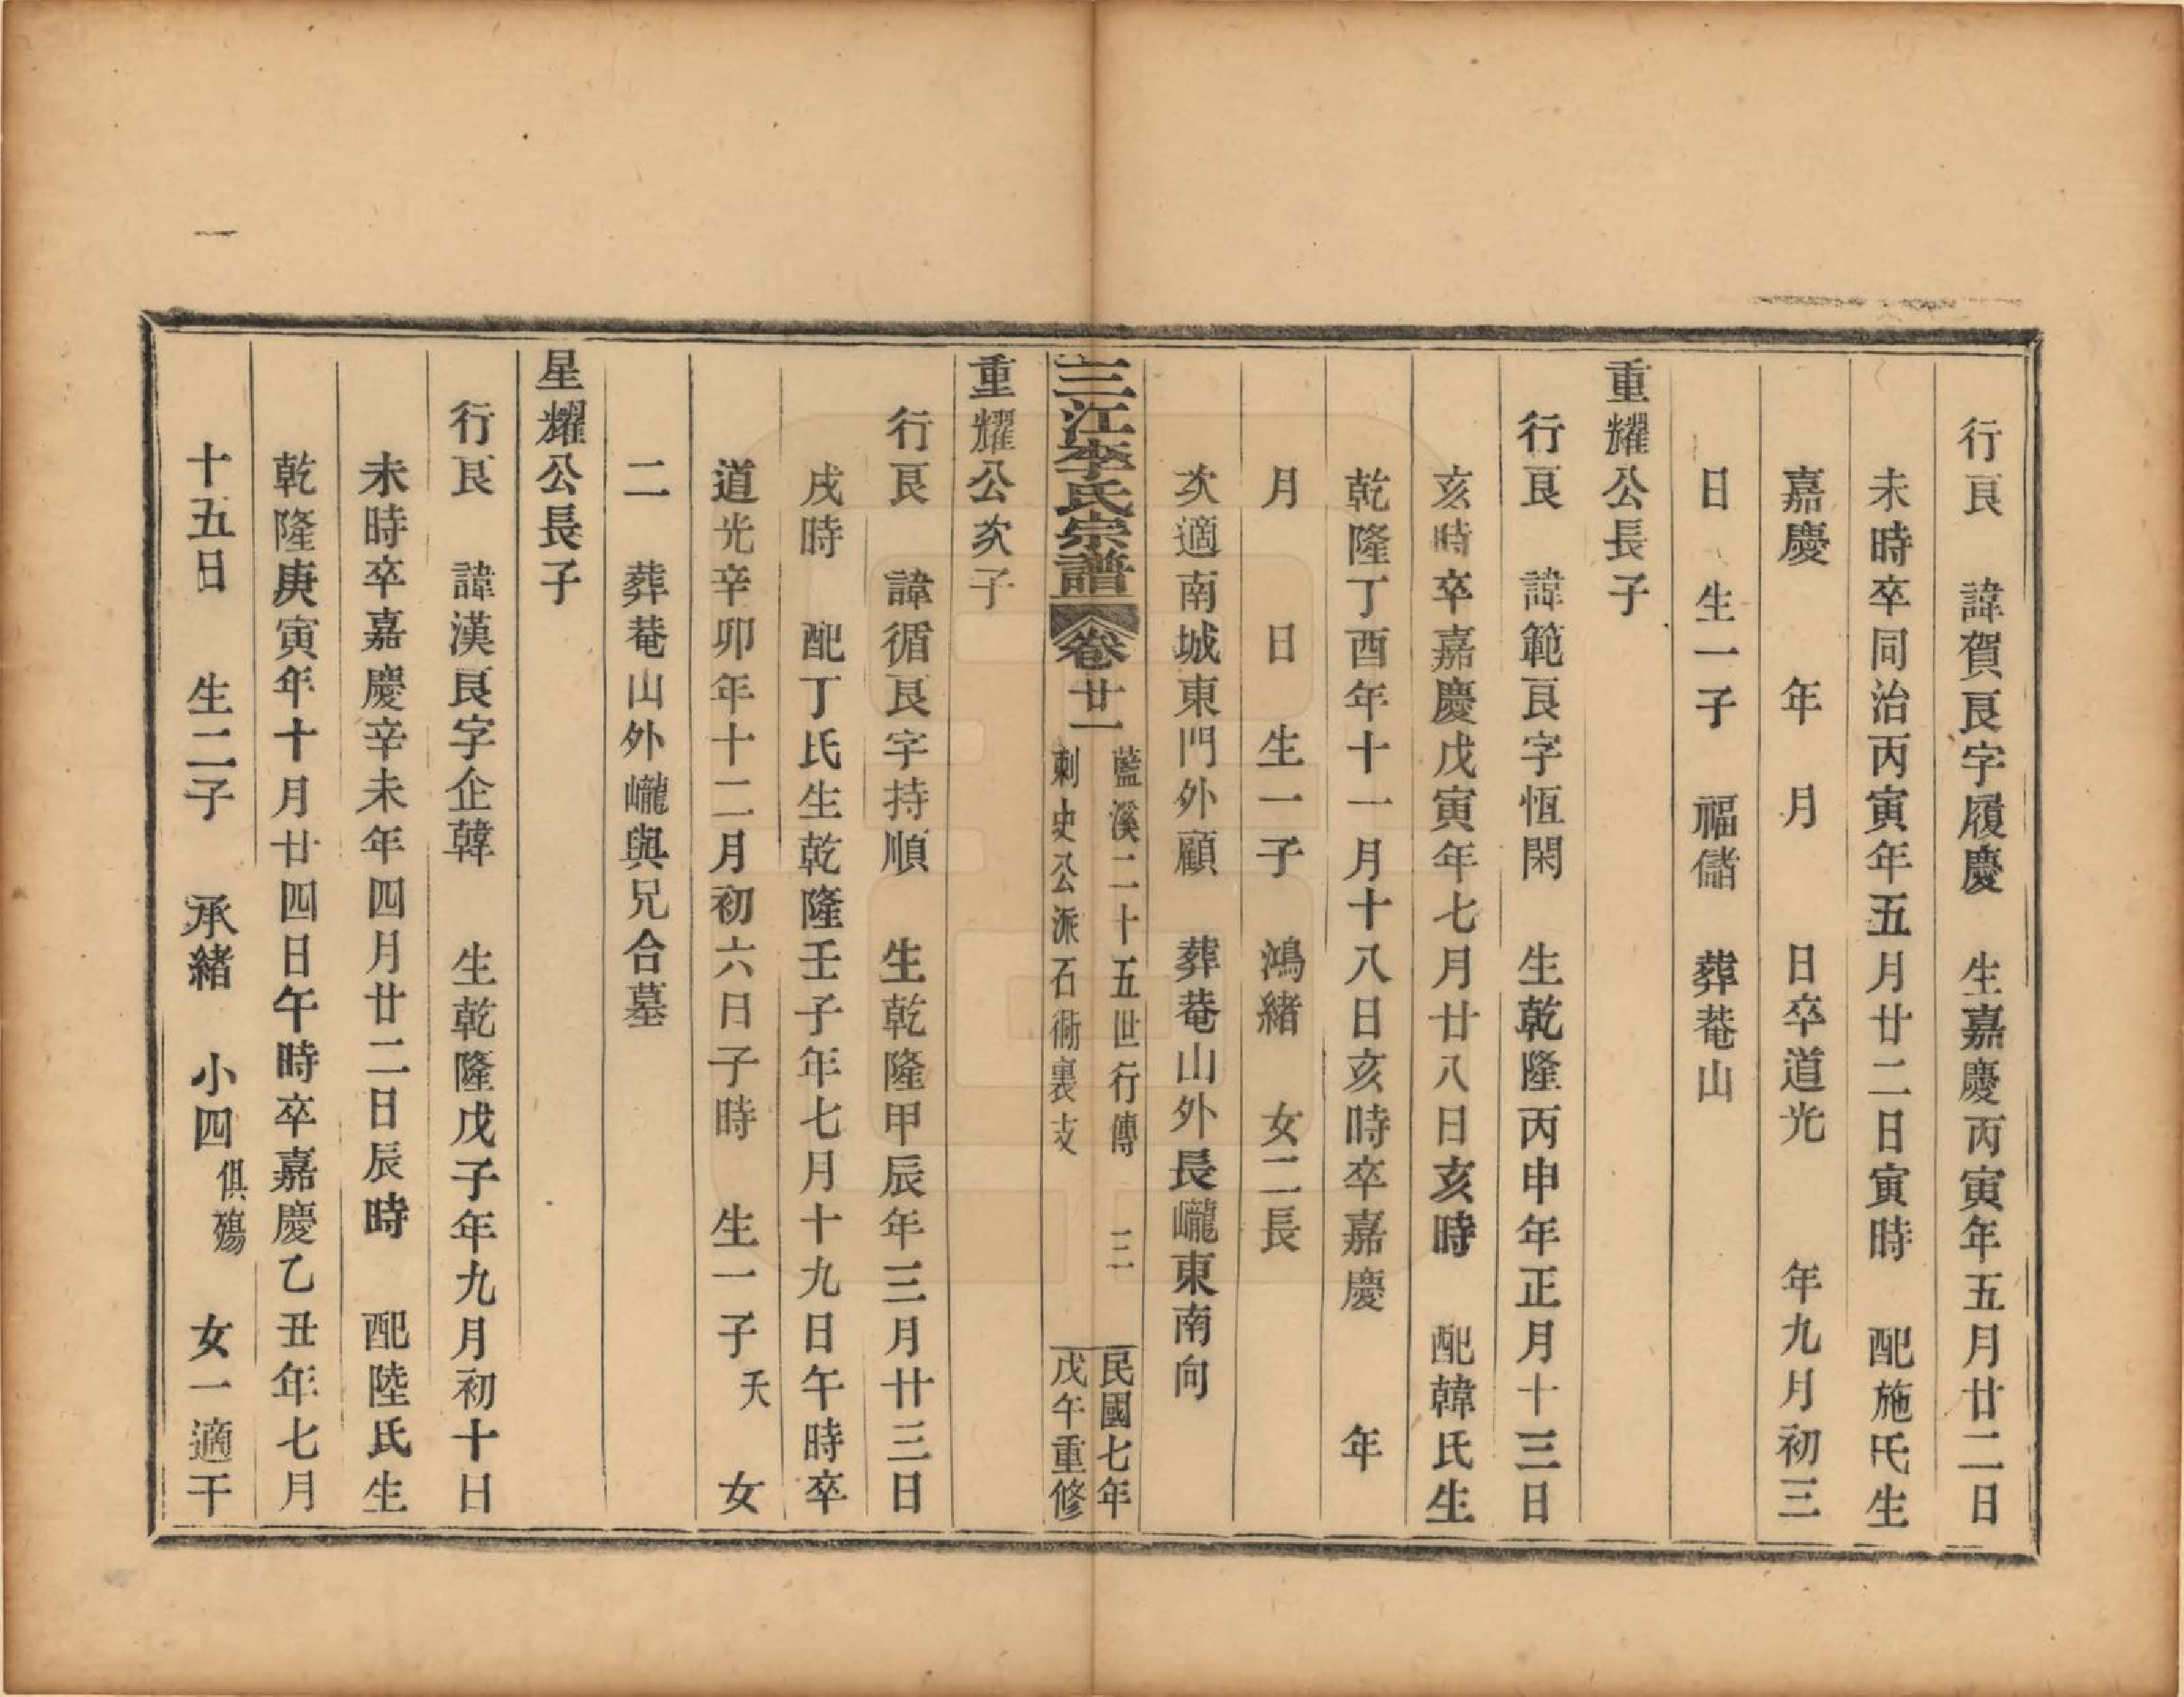 行良　諱賀良字履慶　生嘉慶丙寅年五月廿二日
未時卒同治丙寅年五月廿二日寅時　配施氏生
嘉慶　年　月　日卒道光　年九月初三
日　生一子　福儲　葬菴山
重耀公長子
行良　諱範良字恆閑　生乾隆丙申年正月十三日
亥時卒嘉慶戊寅年七月廿八日亥時　配韓氏生
乾隆丁酉年十一月十八日亥時卒嘉慶　年
月　日　生一子　鴻緒　女二長
次適南城東門外顧　葬菴山外長巄東南向
三江李氏宗譜
卷廿一
藍溪二十五世行傳
刺史公派石衕裏支
三
民國七年
戊午重修
重耀公次子
行良　諱循良字持順　生乾隆甲辰年三月廿三日
戌時　配丁氏生乾隆壬子年七月十九日午時卒
道光辛卯年十二月初六日子時　生一子夭　女
二　葬菴山外巄與兄合墓
星耀公長子
行良　諱漢良字企韓　生乾隆戊子年九月初十日
未時卒嘉慶辛未年四月廿二日辰時　配陸氏生
乾隆庚寅年十月廿四日午時卒嘉慶乙丑年七月
十五日　生二子　承緒　小四俱殤　女一適干